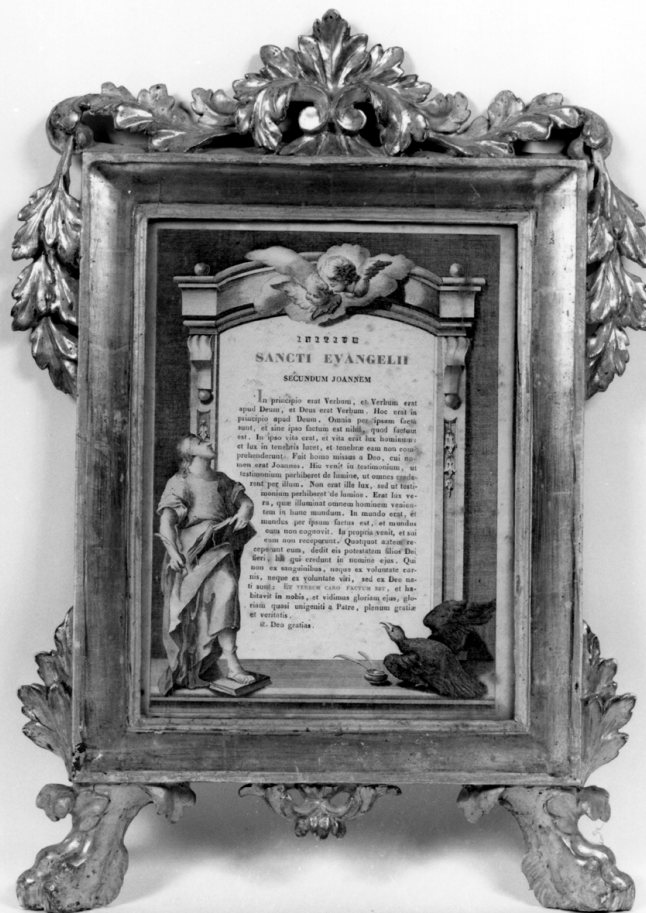 INITIUM
SANCTI EVANGELII
SECUNDUM JOANNEM
In principio erat Verbum, et Verbum erat
apud Deum, et Deus erat Verbum. Hoc erat in
principio apud Deum. Omnia per ipsum facta
sunt, et sine ipso factum est nihil, quod factum
est. In ipso vita erat, et vita erat lux hominum:
et lux in tenebris lucet, et tenebræ eam non com
prehenderunt. Fuit homo missus a Deo, cui no
men erat Joannes. Hic venit in testimonium, ut
testimonium perhiberet de lumine, ut omnes crede
rent per illum. Non erat ille lux, sed ut testi-
monium perhiberet de lumine. Erat lux ve-
ra, quæ illuminat omnem hominem venien-
tem in hunc mundum. In mundo erat, et
mundus per ipsum factus est, et mundus
eum non cognovit. In propria venit, et sui
eum non receperunt. Quotquot autem re-
ceperunt eum, dedit eis potestatem filios Dei
fieri, his qui credunt in nomine ejus. Qui
non ex sanguinibus, neque ex voluntate car-
nis, neque ex voluntate viri, sed ex Deo na-
ti sunt. ET VERBUM CARO FACTUM EST, et ha-
bitavit in nobis, et vidimus gloriam ejus, glo-
riam quasi unigeniti a Patre, plenum gratiæ
et veritatis.
℟. Deo gratias.